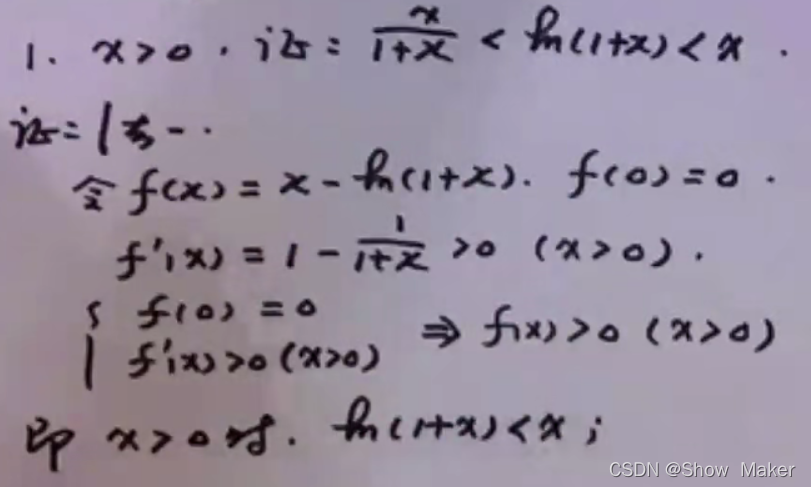 1. x>0. 证: x/(1+x) < ln(1+x) < x.
证: 法一.
令 f(x) = x - ln(1+x). f(0) = 0.
f'(x) = 1 - 1/(1+x) >0 (x>0).
{ f(0) = 0
f'(x)>0 (x>0) ⇒ f(x)>0 (x>0)
即 x>0时. ln(1+x)<x;
CSDN @Show Maker